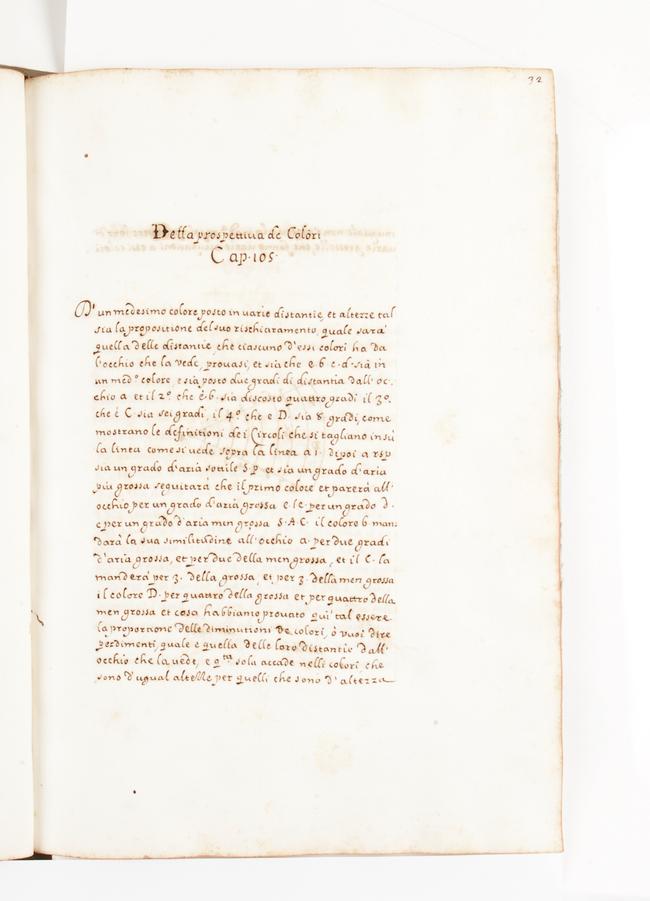 32
Della prospettiva de Colori
Cap. 105.
D'un medesimo colore posto in varie distantie, et alterze tal
sia la propositione del suo rischiaramento, quale sarà
quella delle distantie, che ciascuno d'essi colori ha da
l'occhio che la vede, provasi, et sia che e. b c. d. sia in
un med.º colore, e sia posto due gradi di distantia dall' oc-
chio a et il 2º che é. b. sia discosto quattro gradi il 3º.
che è C sia sei gradi, il 4º che e D. sia 8 gradi, come
mostrano le definitioni dei Circoli che si tagliano in sù
la linea come si vede sopra la linea a i. dipoi a rsp
sia un grado d'aria sotile S p et sia un grado d'aria
più grossa seguitarà che il primo colore et parerà all'
occhio per un grado d'aria grossa e le per un grado d.
e per un grado d'aria men grossa S. A C. il colore b man-
darà la sua similitudine all'occhio a per due gradi
d'aria grossa, et per due della men grossa, et il C. la
manderà per 3. della grossa, et per 3. della men grossa
il colore D. per quattro della grossa et per quattro della
men grossa et cosa habbiamo provato qui tal essere
la proportione delle diminutioni de colori, ò vuoi dire
perdimenti, quale e quella delle loro distantie dall'
occhio che la vede, e q.ta sola accade nelli colori che
sono d'ugual altelle per quelli che sono d'alterza